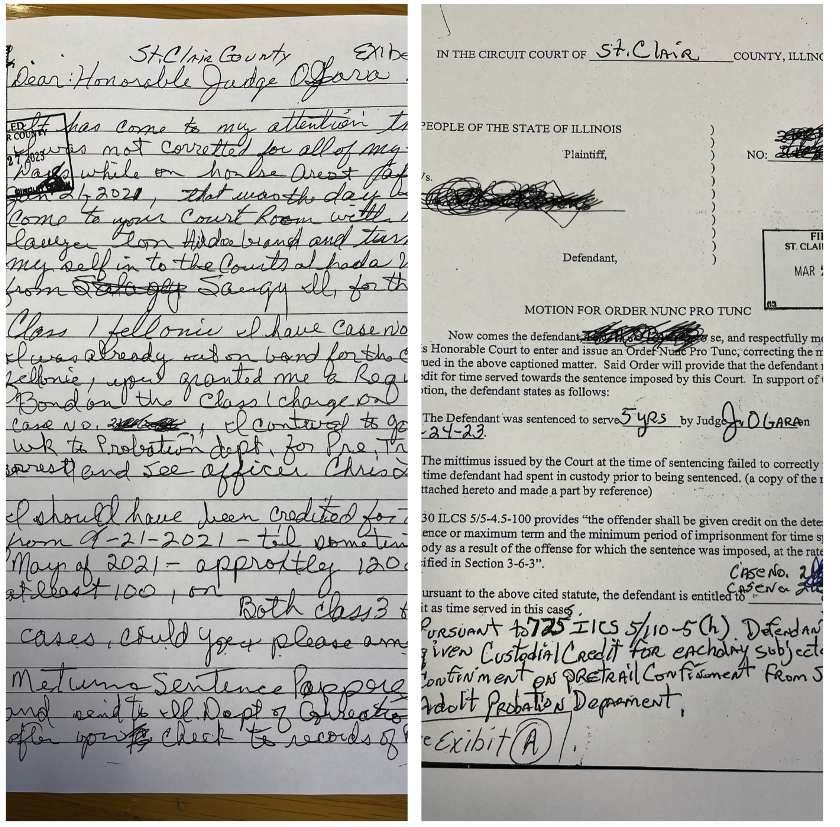 St. Clair County Exibe
Dear: Honorable Judge OGara
It has come to my attention
I was not corretted for all of my
Days while on house arest
Jan 21, 2021, that was the day
Come to your Court Room with
lawyer and turn
my self in to the Courts I had a
from Saugy Ill, for th
Class 1 fellonie I have case no
I was already out on band for the
fellonie, your granted me a Req
Bond on the Class 1 charge on
case no. , I contuned to go
wk to Probation dept. for Pre, Tr
arrest and see officer Chris
I should have been credited for
from -21-2021 - til sometim
May of 2021 - approxtly 120
at least 100, on
Both class 3
cases, could you please am
Sentence Pappers
and send to Ill. Dept of Correctio
after your check to records of
27 2023
IN THE CIRCUIT COURT OF St. Clair COUNTY, ILLINO
PEOPLE OF THE STATE OF ILLINOIS
Plaintiff,
NO:
vs.
Defendant,
FI
ST. CLAI
MAR
63
MOTION FOR ORDER NUNC PRO TUNC
Now comes the defendant, se, and respectfully mo
is Honorable Court to enter and issue an Order Nunc Pro Tunc, correcting the m
ued in the above captioned matter. Said Order will provide that the defendant
edit for time served towards the sentence imposed by this Court. In support of
otion, the defendant states as follows:
The Defendant was sentenced to serve 5 yrs by Judge J. O GARA on
-24-23.
The mittimus issued by the Court at the time of sentencing failed to correctly
time defendant had spent in custody prior to being sentenced. (a copy of the
ttached hereto and made a part by reference)
30 ILCS 5/5-4.5-100 provides "the offender shall be given credit on the dete
ence or maximum term and the minimum period of imprisonment for time sp
ody as a result of the offense for which the sentence was imposed, at the rate
ified in Section 3-6-3".
CASE NO. 2
CASE NO 2
ursuant to the above cited statute, the defendant is entitled to
it as time served in this cases
PURSUANT to 725 ILCS 5/110-5(h) DefendAN
given Custodial Credit for each day subject
Confinement on pretrail Confinment from S
Adult Probation Deparment,
e Exibit A